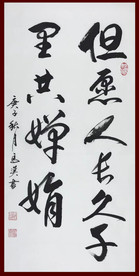 但愿人长久千
里共婵娟
庚子秋月